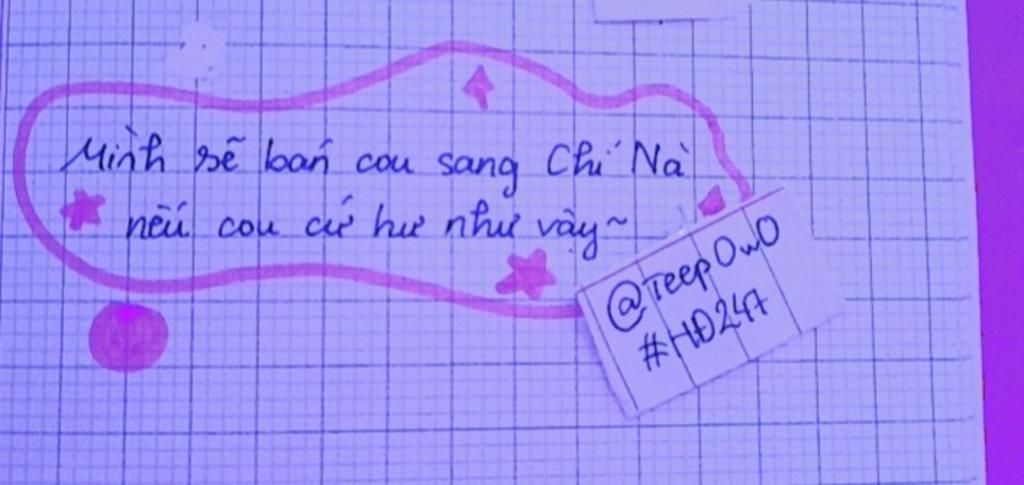 Mình sẽ bán cou sang Chí Nà
nếu cou cứ hư như vậy~
@TeepOwO
#HĐ247